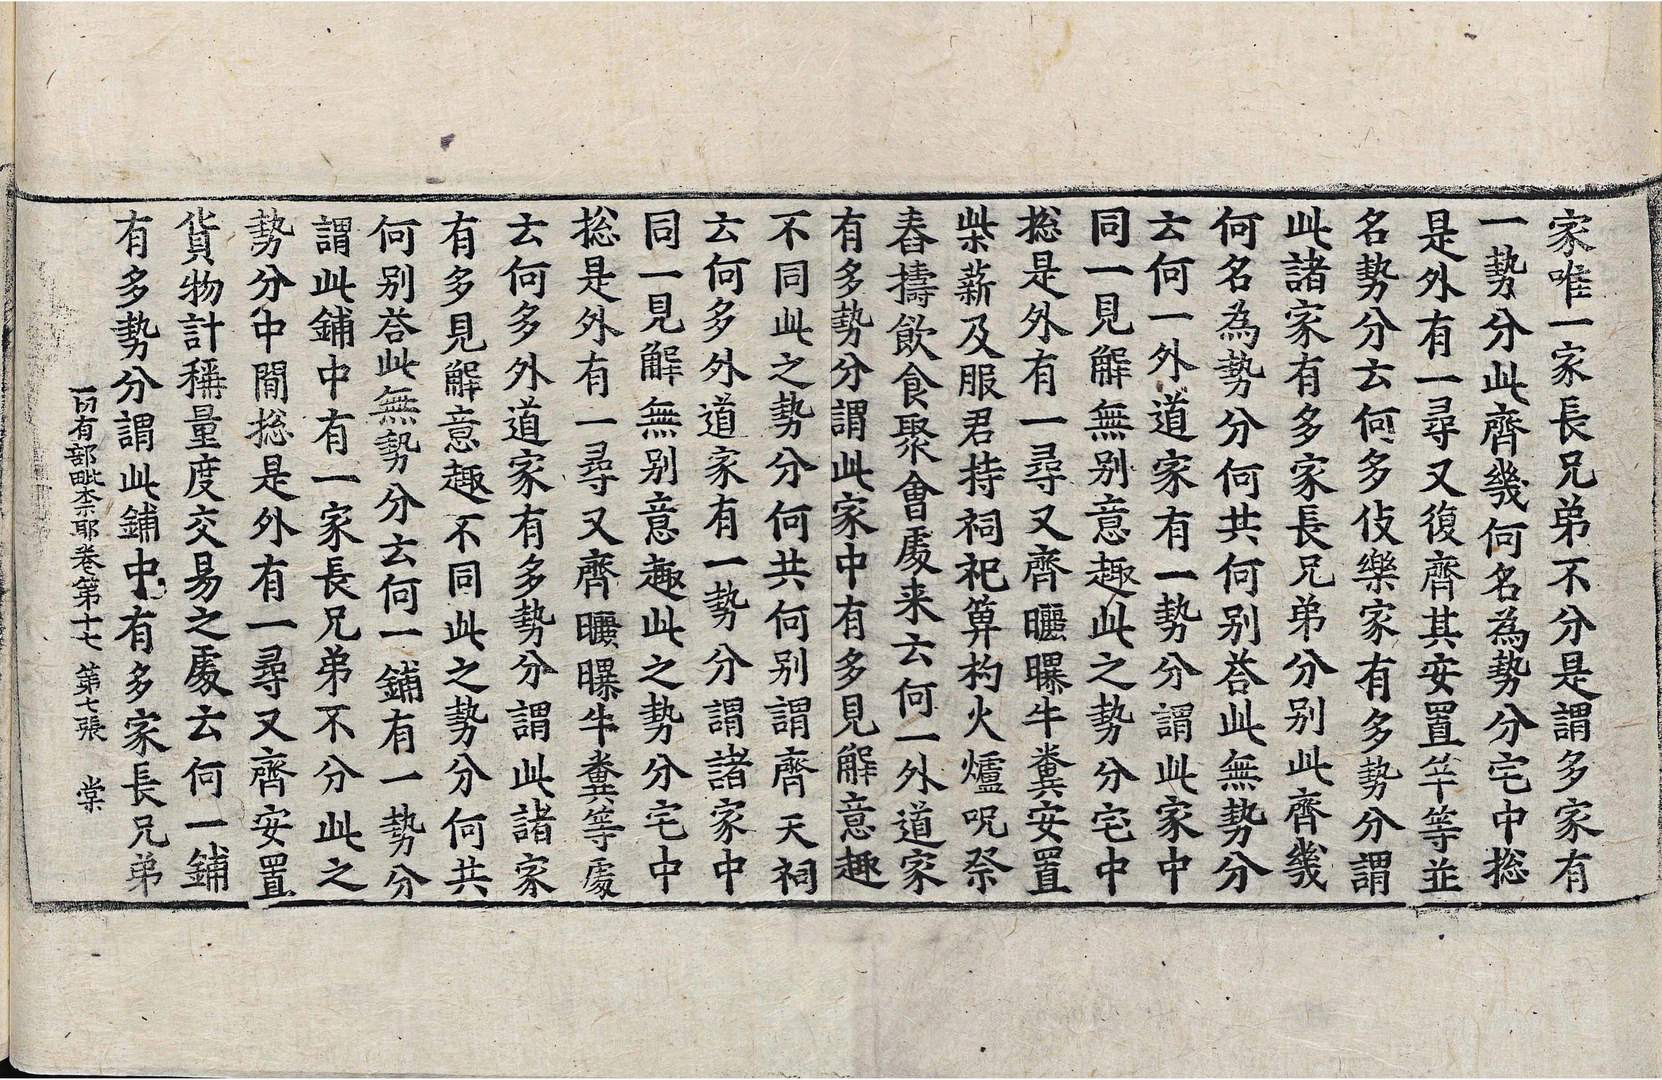 家唯一家長兄弟不分是謂多家有
一勢分此齊幾何名為勢分宅中捴
是外有一尋又復齊其安置竿等並
名勢分云何多伎樂家有多勢分謂
此諸家有多家長兄弟分别此齊幾
何名為勢分何共何别荅此無勢分
云何一外道家有一勢分謂此家中
同一見解無别意趣此之勢分宅中
捴是外有一尋又齊曬曝牛糞安置
柴薪及服君持祠祀箄杓火爐呪祭
舂擣飲食聚會處来去何一外道家
有多勢分謂此家中有多見解意趣
不同此之勢分何共何别謂齊天祠
云何多外道家有一勢分謂諸家中
同一見解無别意趣此之勢分宅中
捴是外有一尋又齊曬曝牛糞等處
云何多外道家有多勢分謂此諸家
有多見解意趣不同此之勢分何共
何别荅此無勢分云何一鋪有一勢分
謂此鋪中有一家長兄弟不分此之
勢分中間捴是外有一尋又齊安置
貨物計稱量度交易之處云何一鋪
有多勢分謂此鋪中有多家長兄弟
一切有部毗奈耶卷第十七 第七張 棠